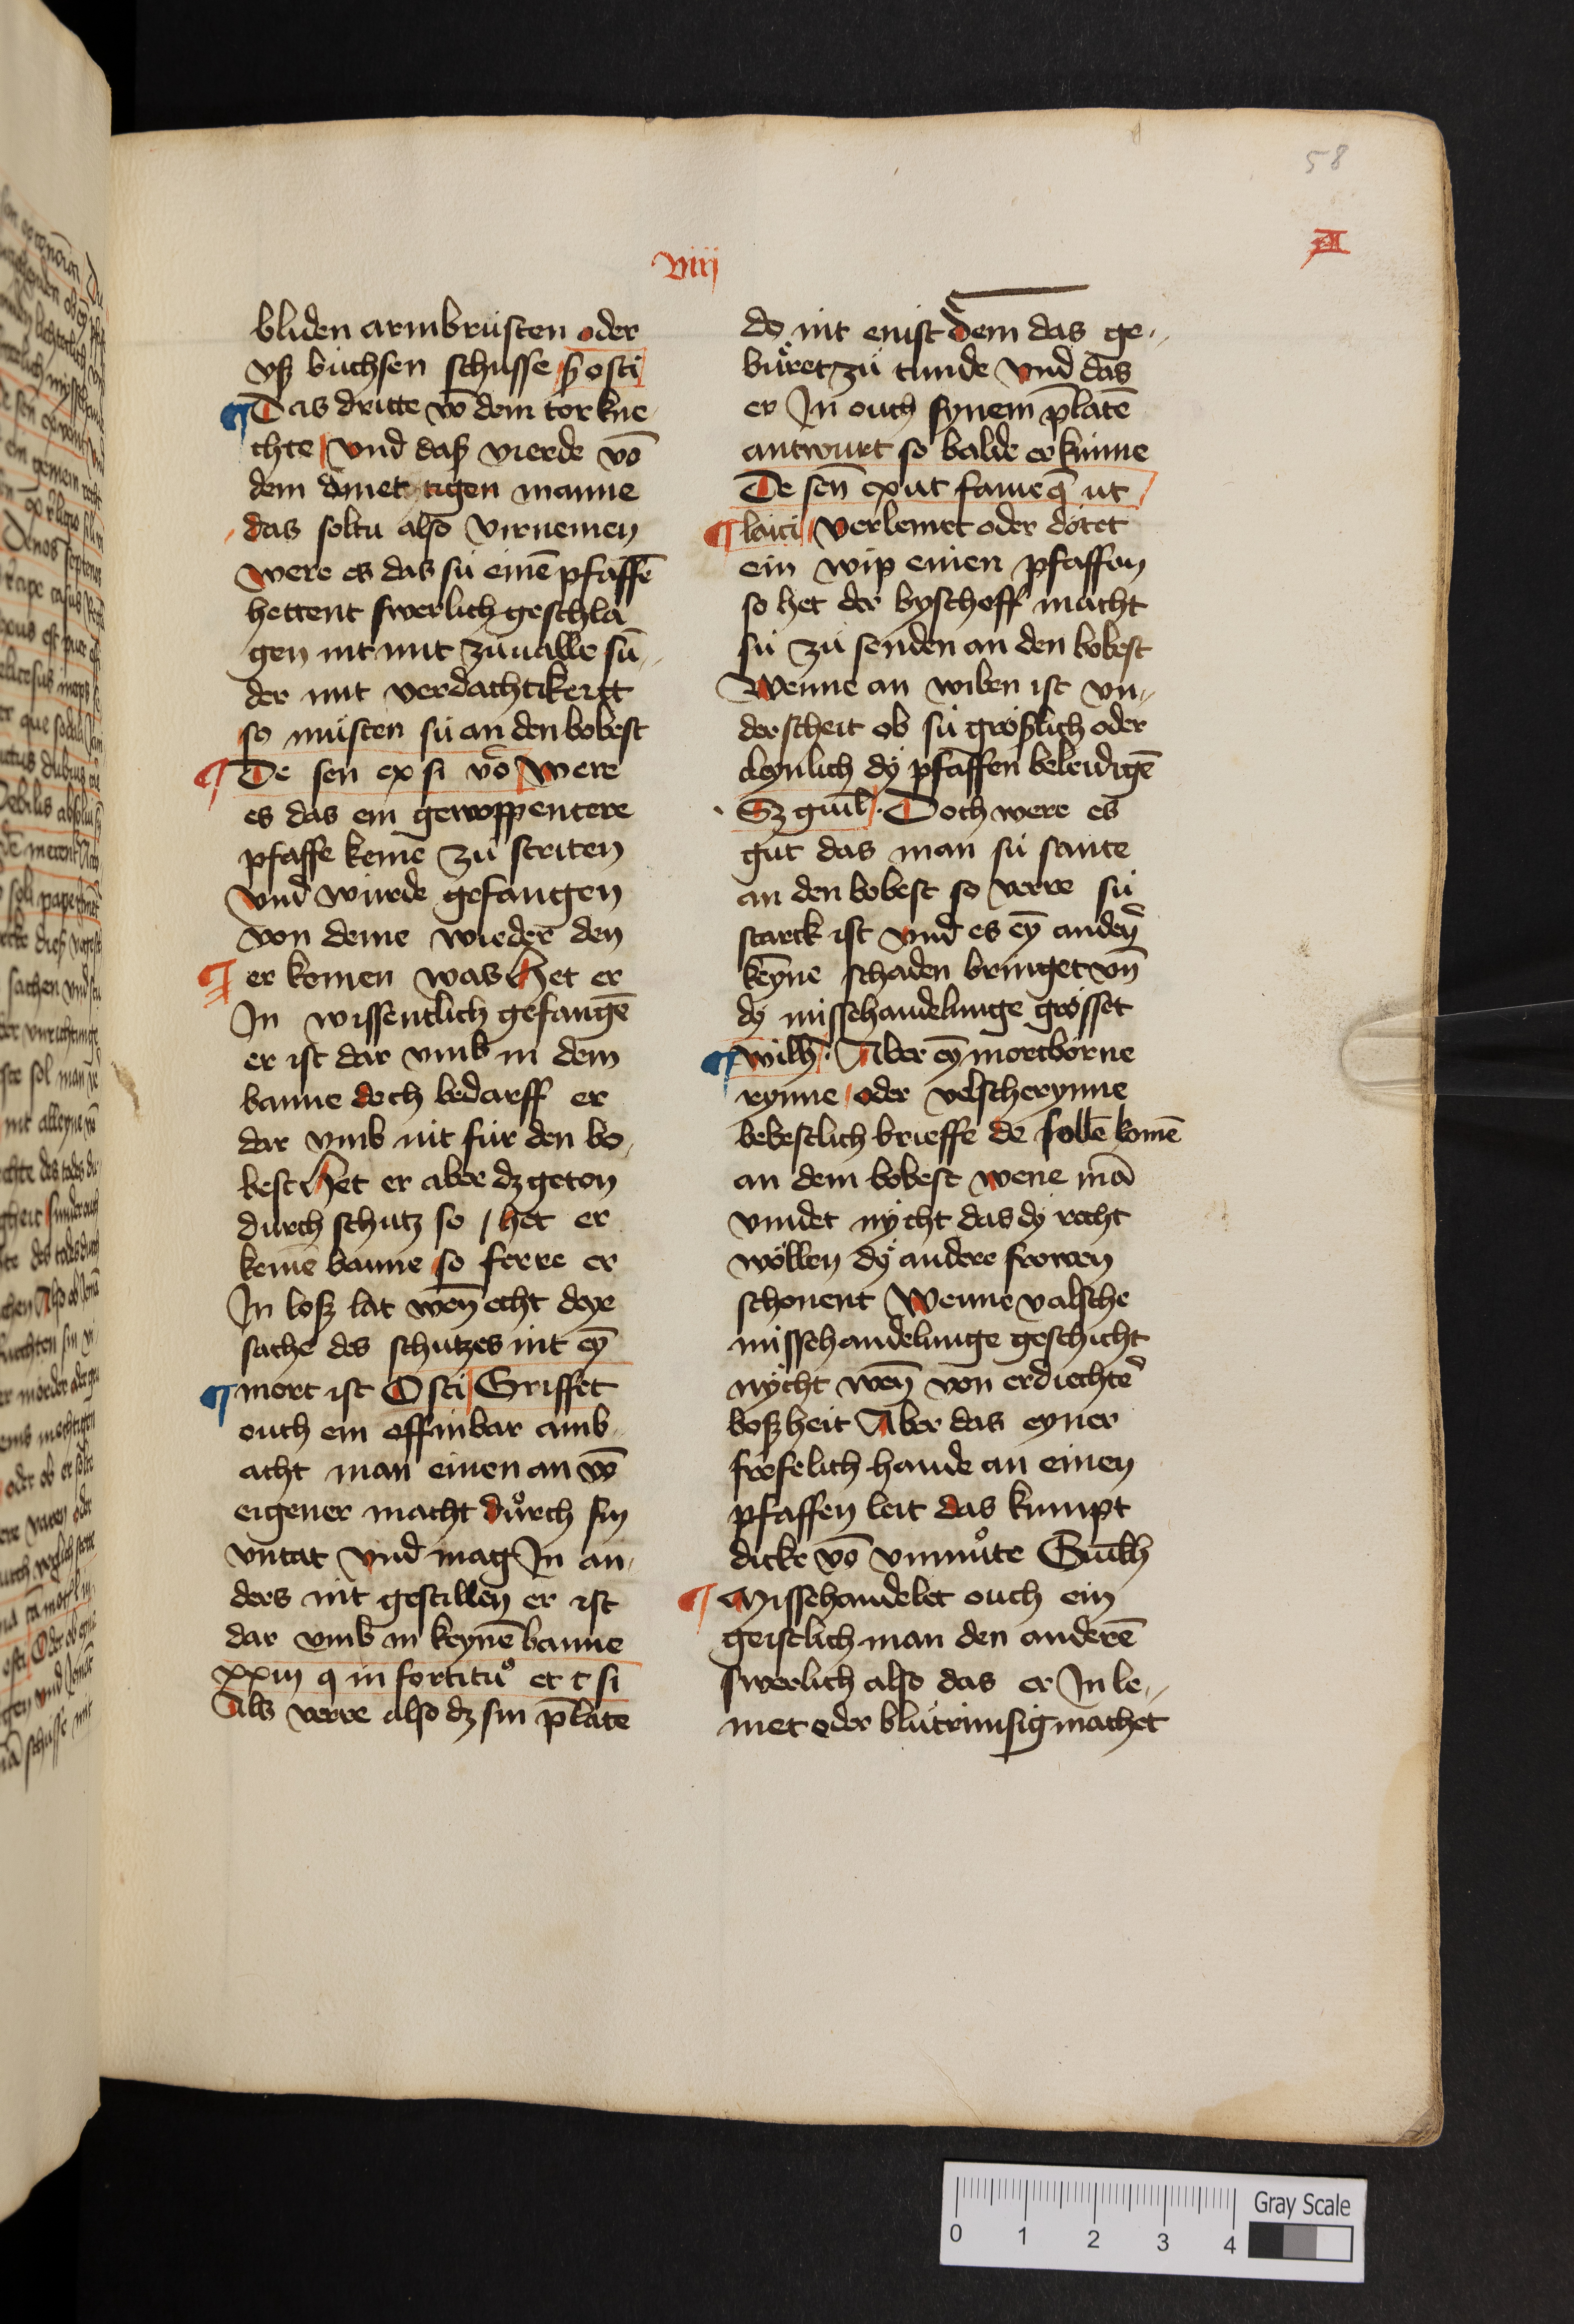 58
viij
bliden armbrüsten oder
vß büchsen schusse ß osti
Das dritte vō dem tor kne
chte vnd daß vierde vō
dem ōmetchtigen manne
das soltu also virnemen
were es das sü einē pfaffē
hettent swerlich geschla
gen nit mit züualle sū„
der mit verdachtikeitt
so müsten sü an den bobest
De sen ex si vo were
es das ein gewoppentere
pfaffe kemē zü striten
vnd würde gefangen
von deme wiederē den
er komen was het er
Jn wissentlich gefangē
er ist dar vmb in dem
banne doch bedarff er
dar vmb nit für den bo
best het er aber dz geton
durch schutz so het er
kemē banne so ferre er
Jn loß lat wen echt dye
sache des schutzes nit eȳ
mort ist Osti Griffet
ouch ein offinbar amb
acht man einen an vō
eigener macht důrch sin
vntat vnd mag Jn an
ders nit gestillen er ist
dar vmb in keynē banne
xxiij q in fortitu° et c si
Als verre also dz sin p̄late
do nit enist dem das ge„
büret zü tunde vnd das
er Jn ouch synem p̄latē
antwurt so balde er künne
De sen̄ ex ut fameq̄ ut
laici verlemet oder dötet
ein wip einen pfaffen
so het der byschoff macht
sü zü senden an den bobest
Wenne an wiben ist vn„
derscheit ob sü größlich oder
cleynlich dy pfaffen beleidigē
Sz guil̄ · Doch were es
gut das man sü sante
an den bobest so verre sü
starck ist vnd es eȳ anden̄
keyne schaden bringet vn̄
dy missehandelunge grösset
wilh̄ · Aber eȳ mortborne
rynne oder velscherynne
bebestlich brieffe de sollē komē
an dem bobest wene mā
vindet nycht das dy recht
wöllen dy andere frowen
schonent Wenne valsche
missehandelunge geschicht
nycht wen̄ von erdiechtē
boßheit Aber das eyner
frefelich hande an einen
pfaffen leit das kumpt
dicke vō vnmůte Guilh̄
Missehandelet ouch ein
geistlich man den anderē
swerlich also das er Jn le„
met oder blütrünsig machet
0 1 2 3 4
Gray Scale